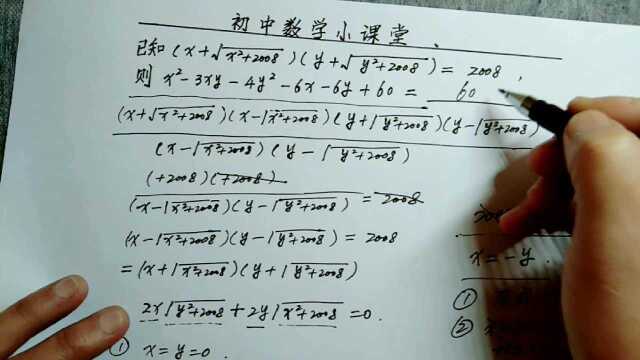 初中数学小课堂、
已知 (x+√x²+2008)(y+√y²+2008) = 2008,
则 x²-3xy-4y²-6x-6y+60 = 60
(x+√x²+2008)(x-√x²+2008)(y+√y²+2008)(y-√y²+2008)
(x-√x²+2008)(y-√y²+2008)
(+2008)(+2008)
(x-√x²+2008)(y-√y²+2008) = 2008
(x-√x²+2008)(y-√y²+2008) = 2008
= (x+√x²+2008)(y+√y²+2008)
2x√y²+2008 + 2y√x²+2008 = 0.
① x=y=0.
x=-y.
①
②